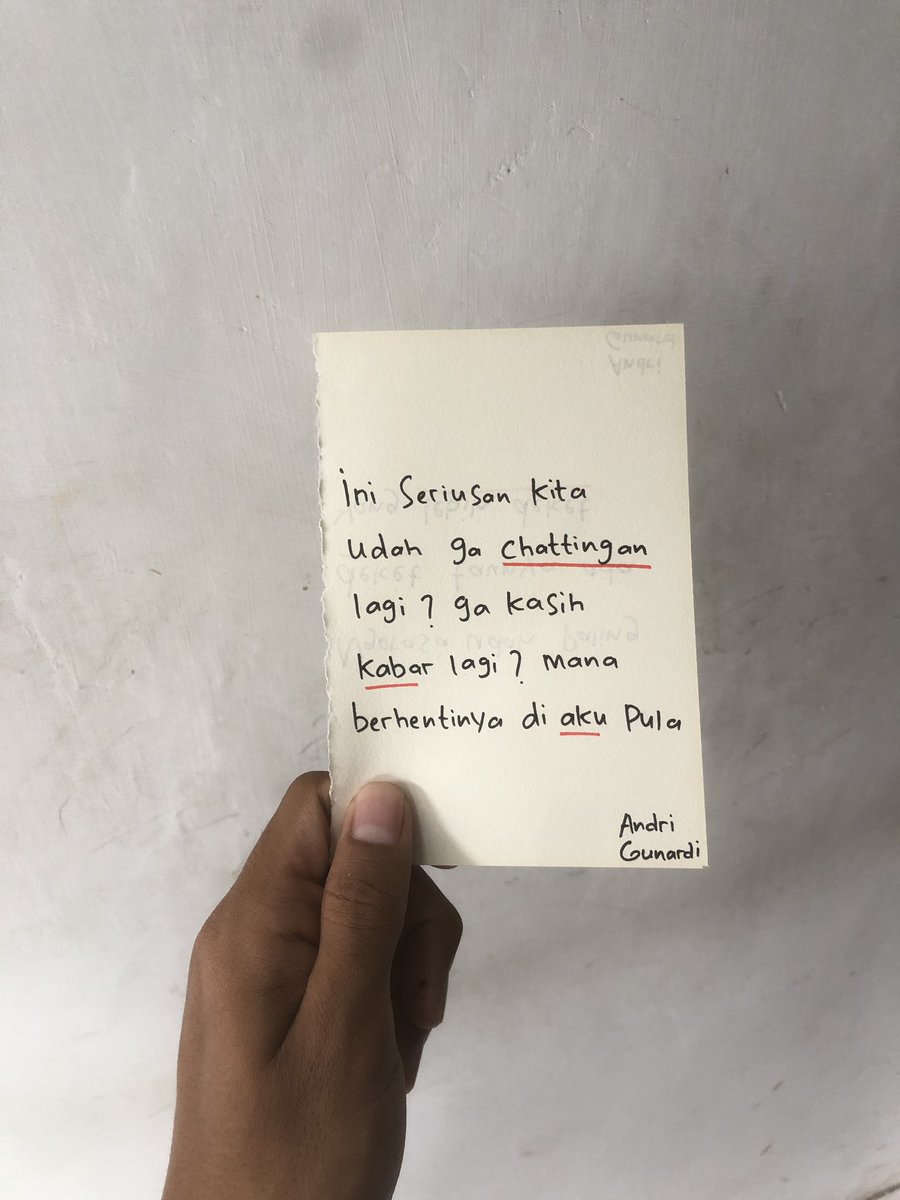 ini Seriusan kita
udah ga chattingan
lagi? ga kasih
kabar lagi? mana
berhentinya di aku pula
Andri
Gunardi